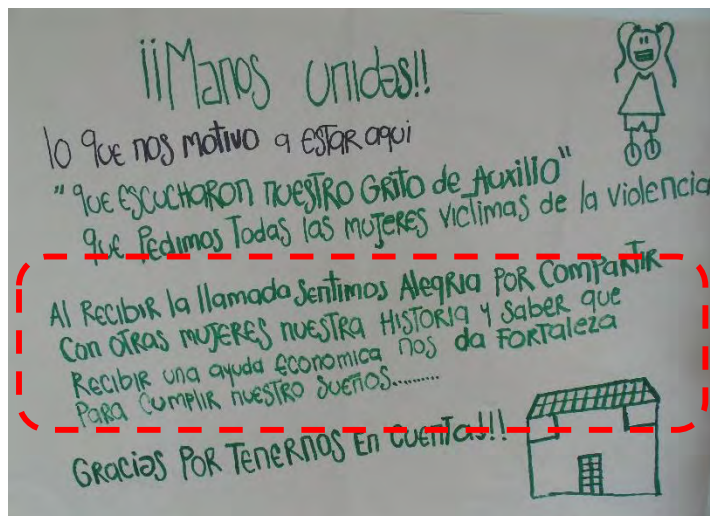 ¡¡Manos unidas!!
lo que nos motivo a estar aqui
"que escucharon nuestro grito de Auxilio"
que Pedimos Todas las mujeres victimas de la violencia
Al Recibir la llamada sentimos Alegria por compartir
Con otras mujeres nuestra Historia y saber que
Recibir una ayuda economica nos da Fortaleza
Para cumplir nuestro sueños.........
Gracias Por Tenernos En cuenta!!!